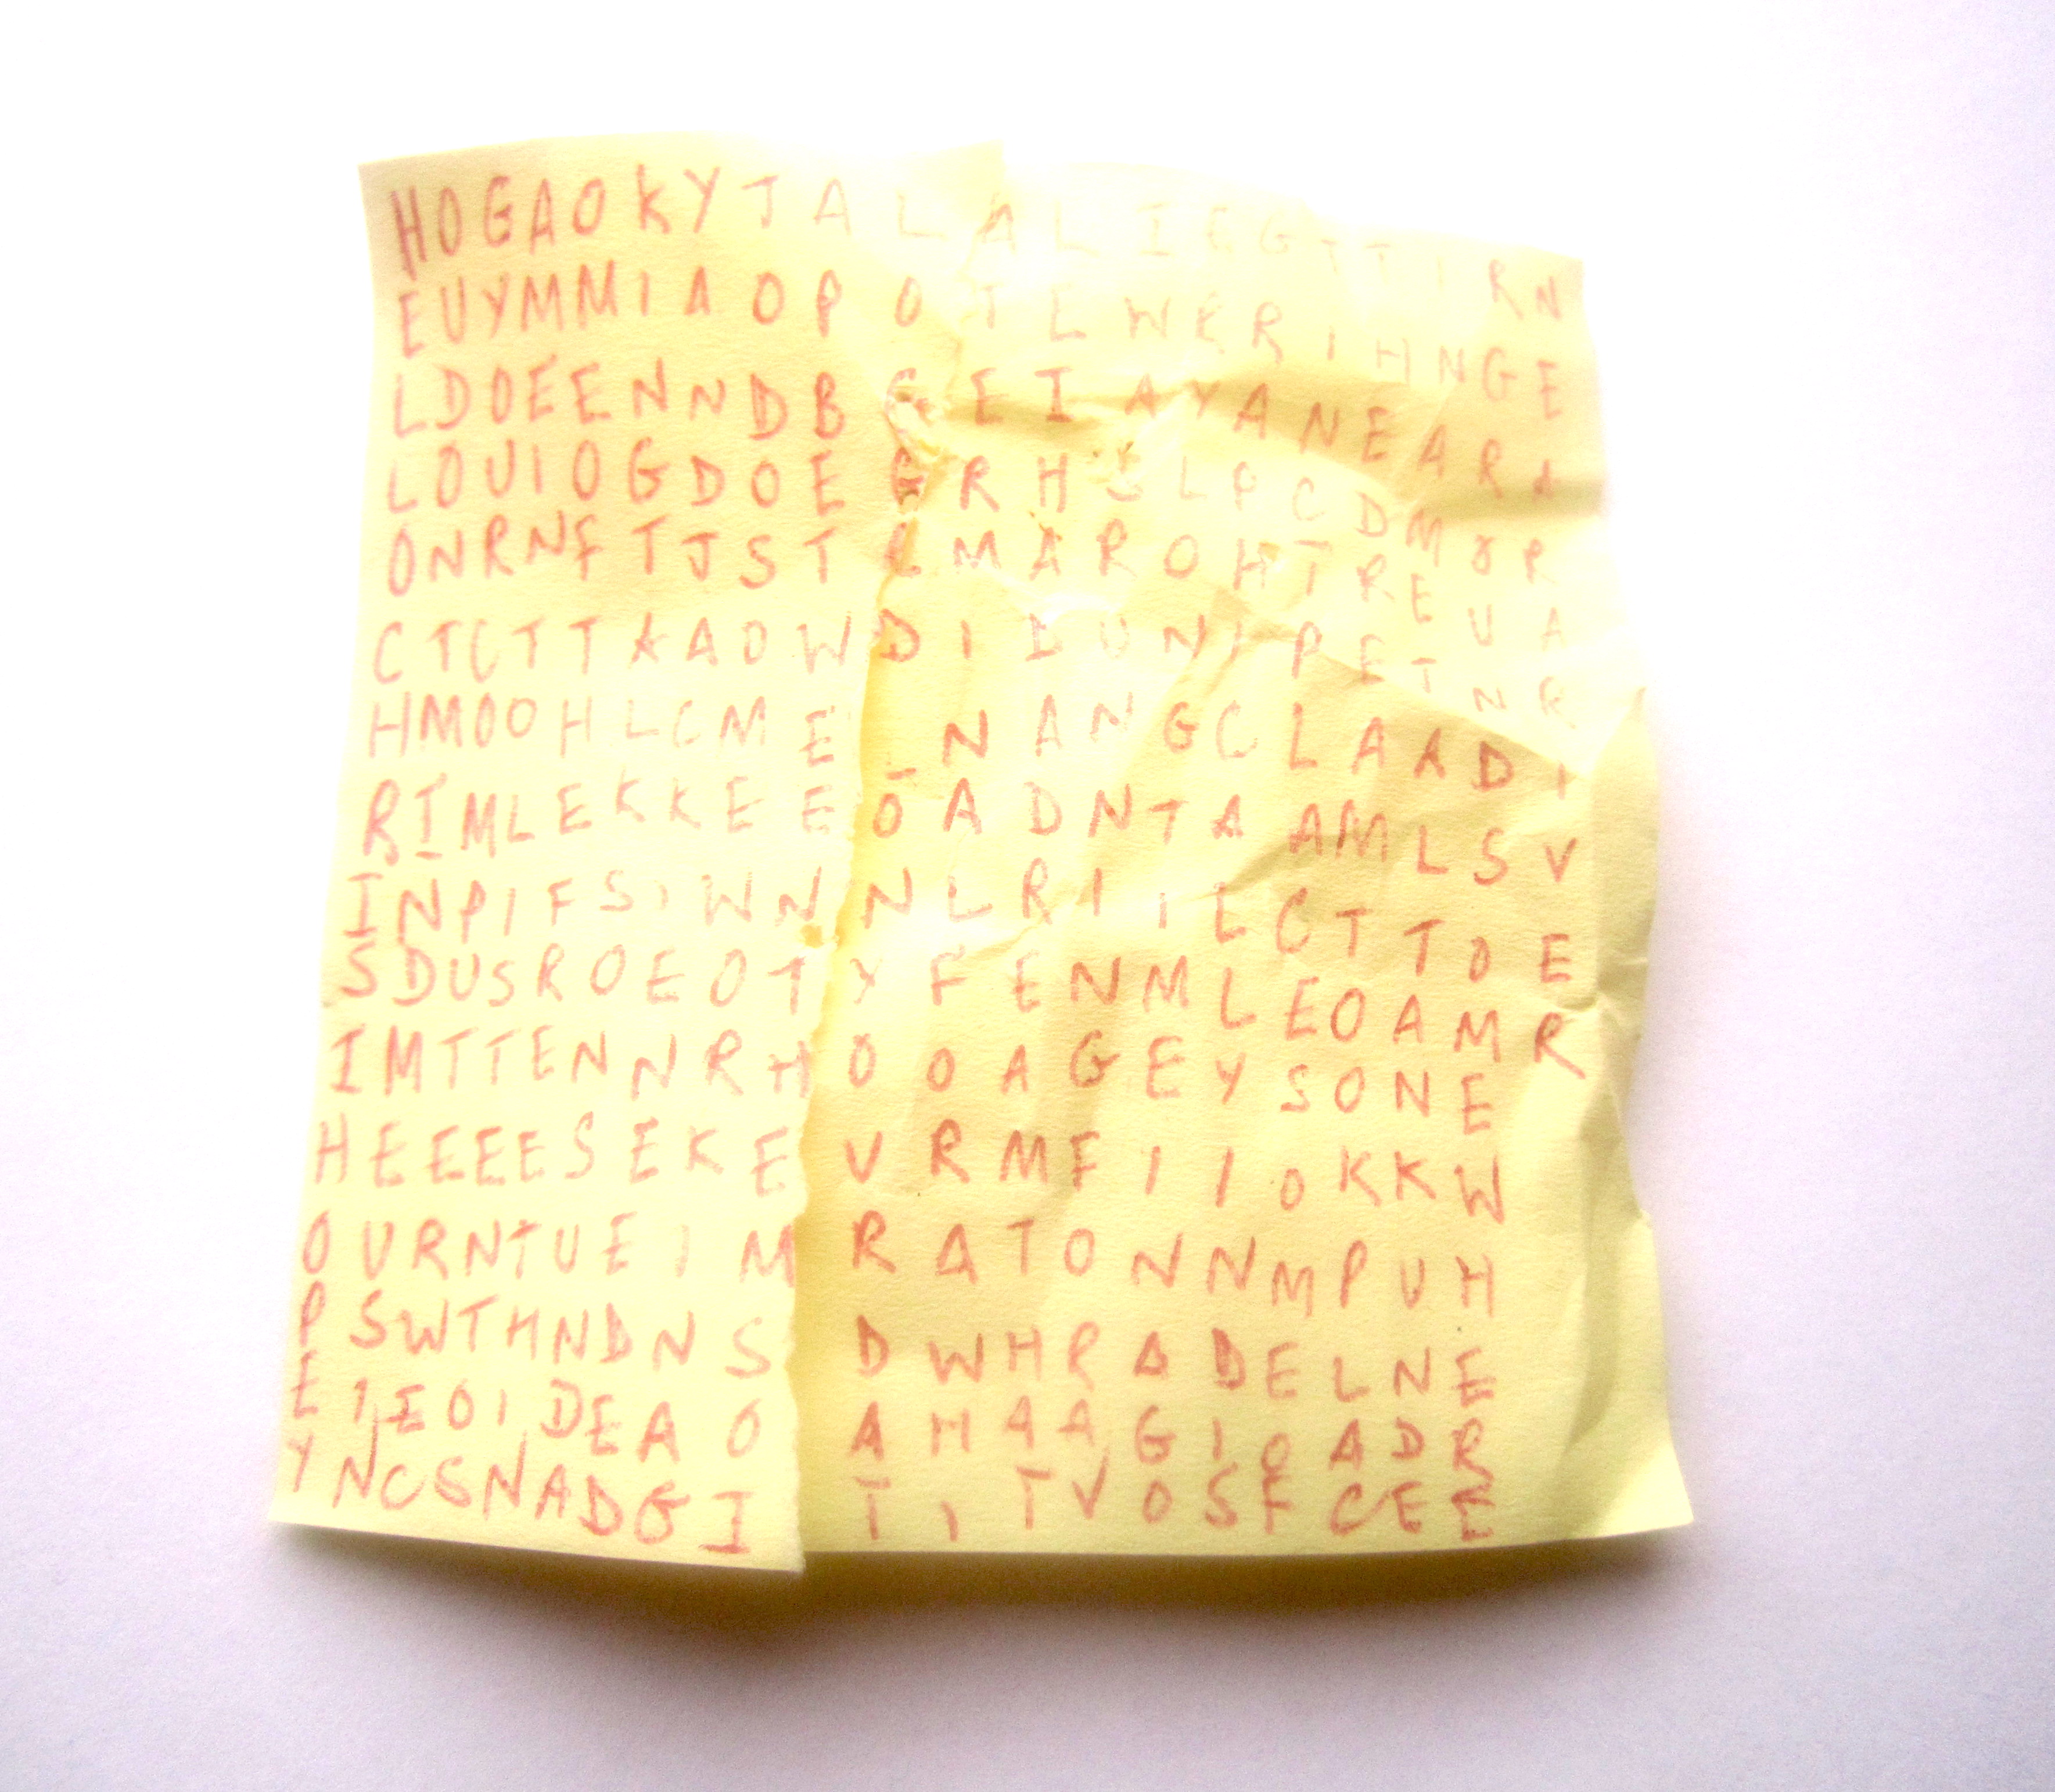 HOGAOKYTALALIEGTTIRN
EUYMMIAOPOTEWRRIHNGE
LDOEENNDBGEIAYANEARA
LOUIOGDOEGRHSLPCDMOR
ONRNFTJSTEMAROHTREUA
CTCTTAAOWDIIUNIPETNR
HMOOHLCME_NANGCLAADI
RIMLEKKEEOADNTAAMLSV
INPIFSIWNNLRIILCTTOE
SDUSROEOTYFENMLEOAMR
IMTTENNRHOOAGEYSONE
HEEEESEKEVRMFIIOKKW
OURNTUEIMRATONNMPUH
PSWTHNDNSDWHRADELNE
EIEOIDEAOAHAAGIOADR
YNCSNADGITITVOSFCEE